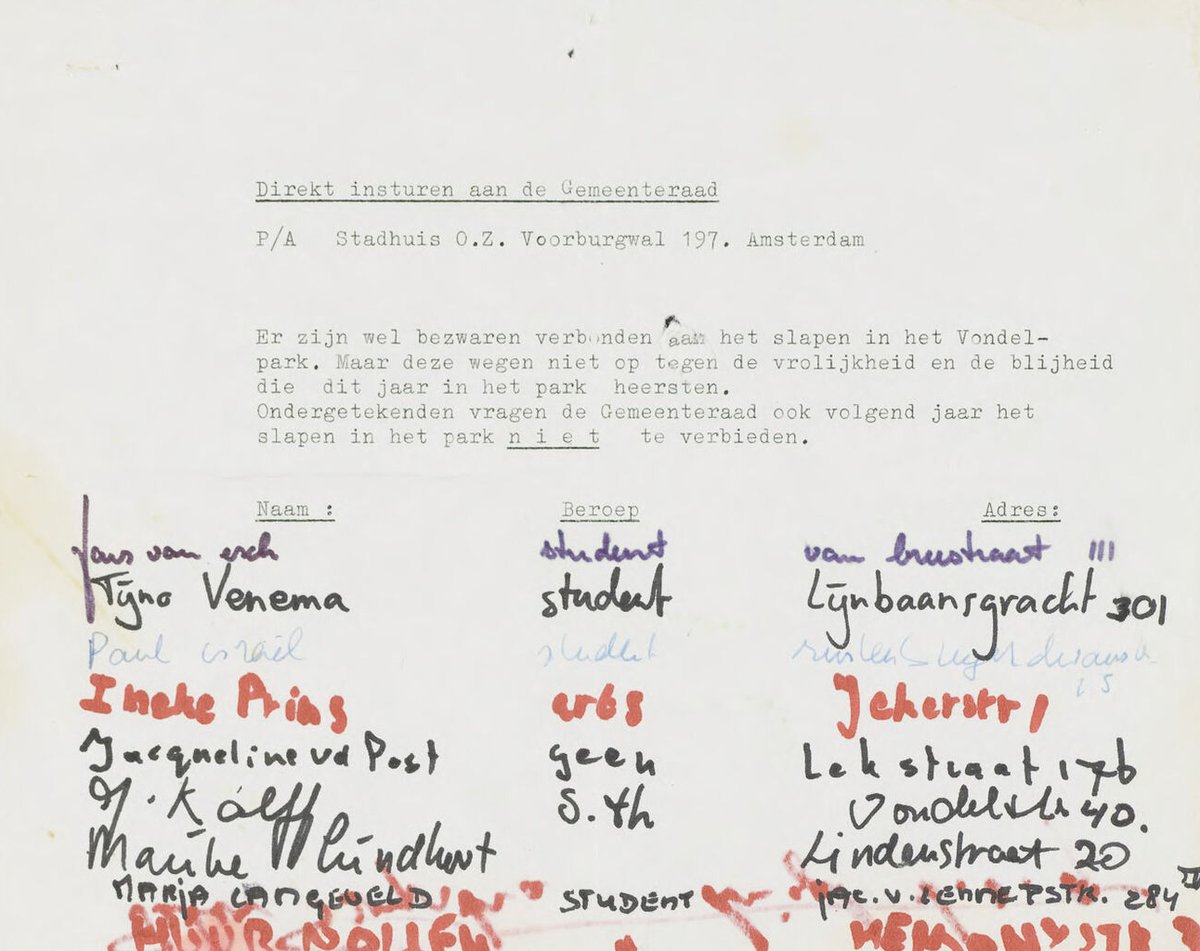 Direkt insturen aan de Gemeenteraad
P/A Stadhuis O.Z. Voorburgwal 197. Amsterdam
Er zijn wel bezwaren verbonden aan het slapen in het Vondel-
park. Maar deze wegen niet op tegen de vrolijkheid en de blijheid
die dit jaar in het park heersten.
Ondergetekenden vragen de Gemeenteraad ook volgend jaar het
slapen in het park n i e t te verbieden.
Naam : Beroep Adres:
van esch student III
Tyno Venema student Lijnbaansgracht 301
Paul israël student 15
Ineke Prins Jekerstr 1
Jacqueline vd Post geen Lekstraat 176
J. Kalff Vondelstr 40.
Lindenstraat 20
MARJA LANGEVELD STUDENT JAC. V. LENNEPSTR. 284 III
NOLLEN